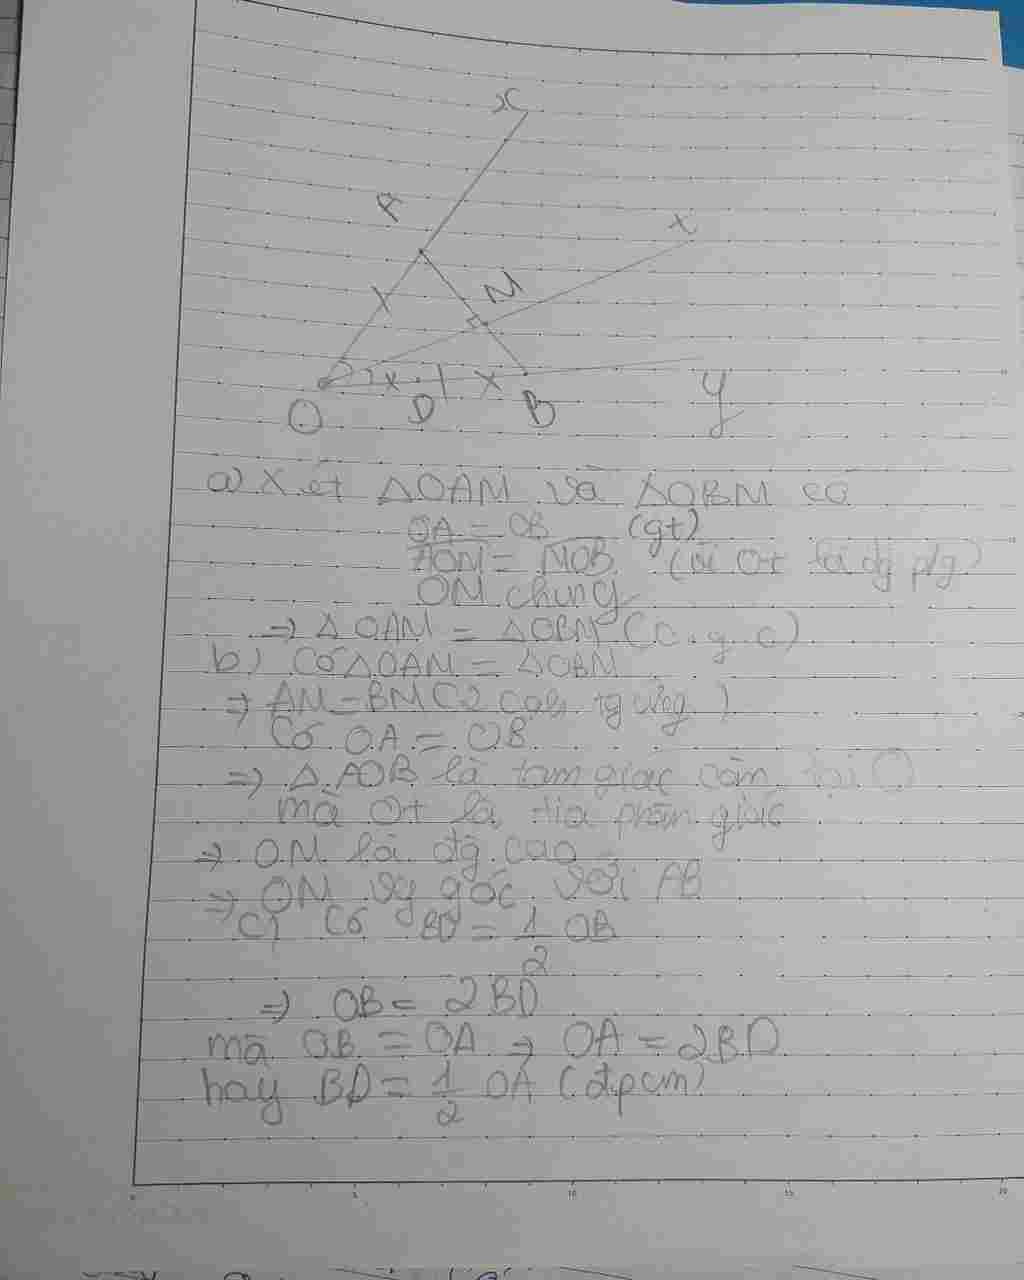 x
A
t
M
O
D
B
y
a) Xét ΔOAM và ΔOBM có
OA = OB (gt)
AOM = MOB (vì Ot là đg p/g)
OM chung
=> ΔOAM = ΔOBM (c.g.c)
b) Có ΔOAM = ΔOBM
=> AM = BM (2 cạnh tg ứng)
Có OA = OB
=> ΔAOB là tam giác cân tại O
mà Ot là tia phân giác
=> OM là đg cao
=> OM vg góc với AB
c) Có BD = 1/2 OB
=> OB = 2BD
mà OB = OA => OA = 2BD
hay BD = 1/2 OA (đpcm)
0 5 10 15 20